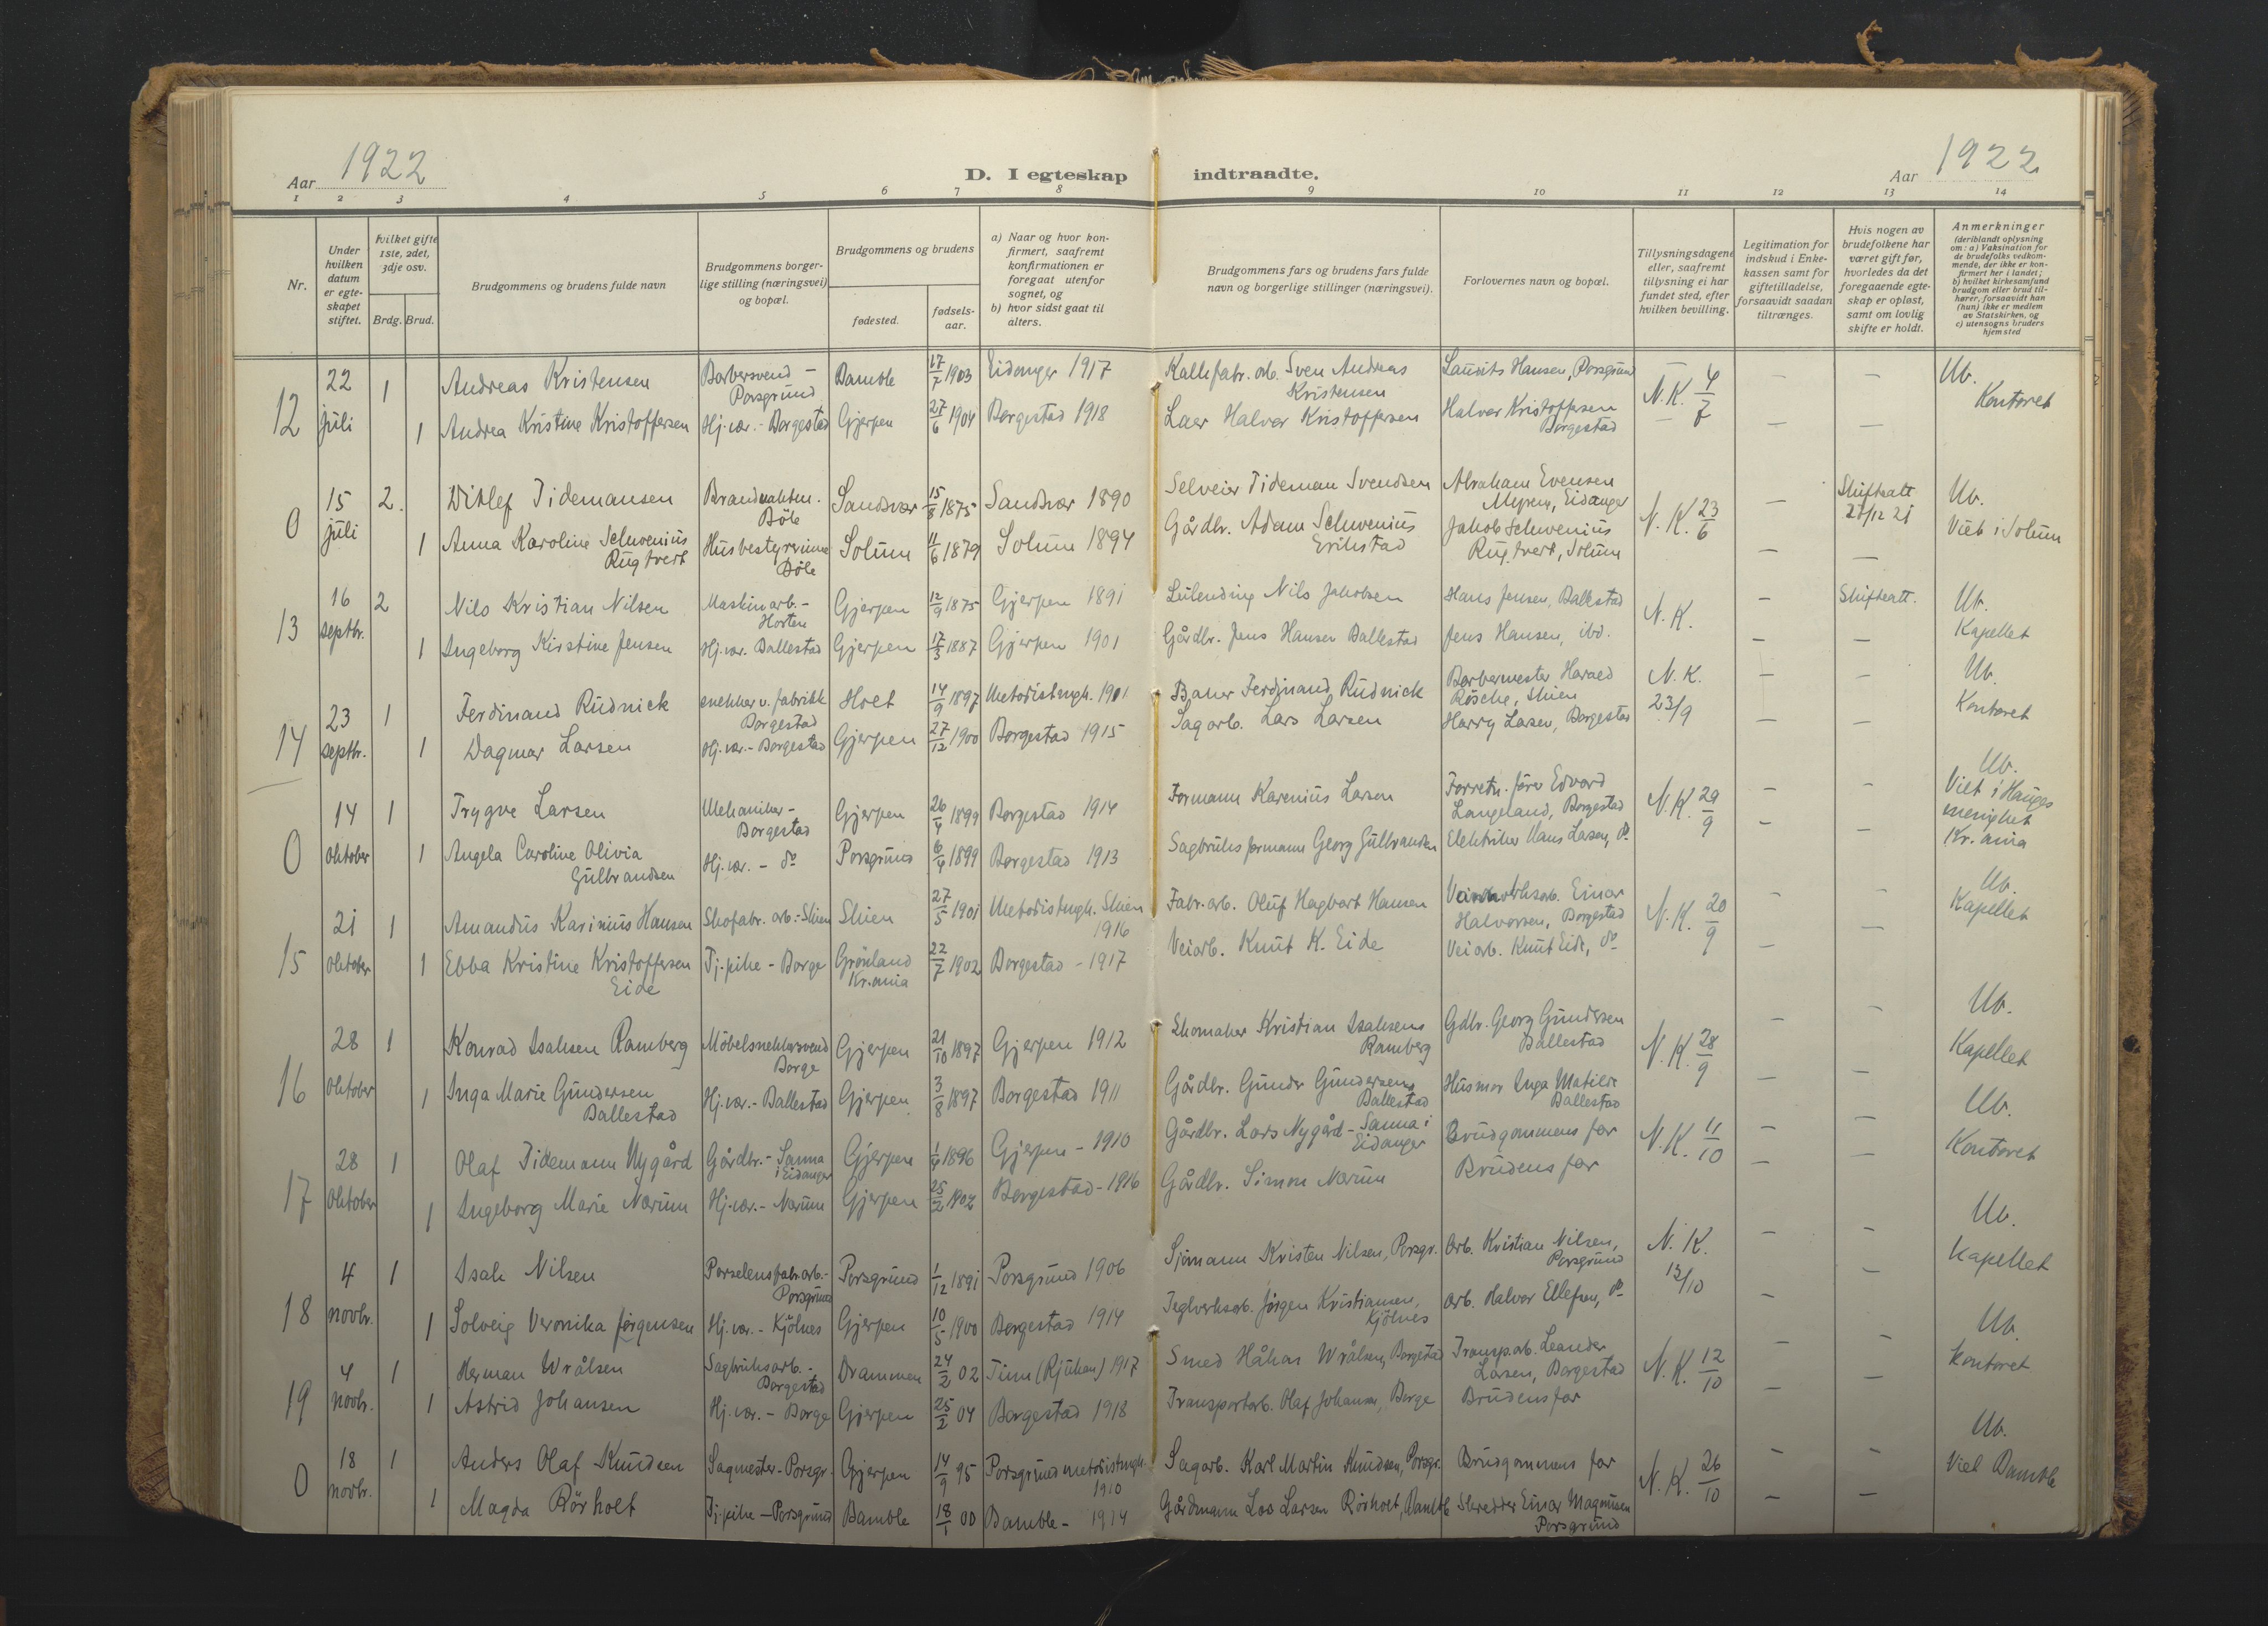 Aar 1922
D. I egteskap indtraadte.
Aar 1922
1 2 3 4 5 6 7 8 9 10 11 12 13 14
Nr.
Under hvilken datum er egteskapet stiftet.
hvilket gifte 1ste, 2det, 3dje osv.
Brdg. Brud.
Brudgommens og brudens fulde navn
Brudgommens borgerlige stilling (næringsvei) og bopæl.
Brudgommens og brudens
fødested.
fødselsaar.
a) Naar og hvor konfirmert, saafremt konfirmationen er foregaat utenfor sognet, og
b) hvor sidst gaat til alters.
Brudgommens fars og brudens fars fulde navn og borgerlige stillinger (næringsvei).
Forlovernes navn og bopæl.
Tillysningsdagene eller, saafremt tillysning ei har fundet sted, efter hvilken bevilling.
Legitimation for indskud i Enkekassen samt for giftetilladelse, forsaavidt saadan tiltrænges.
Hvis nogen av brudefolkene har været gift før, hvorledes da det foregaaende egteskap er opløst, samt om lovlig skifte er holdt.
Anmerkninger (deriblandt oplysning om: a) Vaksination for de brudefolks vedkommende, der ikke er konfirmert her i landet; b) hvilket kirkesamfund brudgom eller brud tilhører, forsaavidt han (hun) ikke er medlem av Statskirken, og c) utensogns bruders hjemsted
12 22 juli 1 Andreas Kristensen Barbersvend – Porsgrund Bamble 17/7 1903 Eidanger 1917 Kallefabr. arb. Sven Andreas Kristensen Laurits Hansen, Porsgrund N.K. 4/7 – – Ub. Kontoret
1 Andrea Kristine Kristoffersen Hj. vær. - Borgestad Gjerpen 27/6 1904 Borgestad 1918 Laer Halvor Kristoffersen Halvor Kristoffersen Borgestad – –
0 15 juli 2. Ditlef Tidemansen Brandvakten. Böle Sandsvær 15/8 1875 Sandsvær 1890 Selveier Tideman Svendsen Abraham Evensen Myren, Eidanger N.K. 23/6 – Skifteatt 27/12 21 Ub. Viet i Solum
1 Anna Karoline Schwenius Rugtvert Husbestyrerinne Böle Solum 11/6 1879 Solum 1894 Gårdbr. Adam Schwenius Erikstad Jakob Schwenius Rugtvert, Solum – –
13 16 septbr. 2 Nils Kristian Nilsen Maskinarb. - Horten Gjerpen 12/9 1875 Gjerpen 1891 Leilending Nils Jakobsen Hans Jensen, Ballestad N.K. – Skifteatt. Ub. Kapellet
1 Ingeborg Kirstine Jensen Hj. vær. Ballestad Gjerpen 17/3 1887 Gjerpen 1901 Gårdbr. Jens Hansen Ballestad Jens Hansen, ibd. – –
14 23 septbr. 1 Ferdinand Rudnick snekker v. fabrikk Borgestad Holt 14/9 1897 Metodistmgh. 1901 Baker Ferdinand Rudnick Barbermester Harald Rösche, Skien N.K. 23/9 – – Ub. Kontoret
1 Dagmar Larsen Hj. vær. - Borgestad Gjerpen 27/12 1900 Borgestad 1915 Sagarb. Lars Larsen Harry Larsen, Borgestad – –
0 14 oktober 1 Trygve Larsen Mekaniker - Borgestad Gjerpen 26/4 1899 Borgestad 1914 Formann Karenius Larsen Forretn. förer Edvard Langeland, Borgestad N.K. 29/9 – – Ub. Viet i Hauges menighet Kr.ania
1 Angela Caroline Olivia Gulbrandsen Hj. vær. - do Porsgrund 6/4 1899 Borgestad 1913 Sagbruksformann Georg Gulbrandsen Elektriker Hans Larsen, do – –
15 21 oktober 1 Amandus Karinius Hansen Skofabr. arb. - Skien Skien 27/5 1901 Metodistmgh. Skien 1916 Fabr. arb. Oluf Hagbart Hansen Einar Halvorsen, Borgestad N.K. 20/9 – – Ub. Kapellet
1 Ebba Kristine Kristoffersen Eide Tj. pike - Borge Grönland Kr.ania 22/7 1902 Borgestad - 1917 Veiarb. Knut K. Eide Veiarb. Knut Eide, do –
16 28 oktober 1 Konrad Isaksen Ramberg Möbelsnekkersvend Borge Gjerpen 21/10 1897 Gjerpen 1912 Skomaker Kristian Isaksens Ramberg Gdbr. Georg Gundersen Ballestad N.K. 28/9 – – Ub. Kapellet
1 Inga Marie Gundersen Ballestad Hj. vær. - Ballestad Gjerpen 3/8 1897 Borgestad 1911 Gårdbr. Gunder Gundersens Ballestad Husmor Inga Matilde Ballestad – –
17 28 oktober 1 Olaf Tidemann Nygård Gårdbr. - Sanna i Eidanger Gjerpen 1/4 1896 Gjerpen - 1910 Gårdbr. Lars Nygård - Sanna i Eidanger Brudgommens far N.K. 11/10 – – Ub. Kontoret
1 Ingeborg Marie Nærum Hj. vær. - Nærum Gjerpen 25/2 1902 Borgestad - 1916 Gårdbr. Simon Nærum Brudens far – –
18 4 novbr. 1 Isak Nilsen Porselensfabr. arb. - Porsgrund Porsgrund 1/12 1891 Porsgrund 1906 Sjömann Kristen Nilsen, Porsgr. Arb. Kristian Nilsen, Porsgrund N.K. 13/10 – – Ub. Kapellet
1 Solveig Veronika Jörgensen Hj. vær. - Kjölnes Gjerpen 10/5 1900 Borgestad 1914 Teglverksarb. Jörgen Kristiansen, Kjölnes Arb. Halvor Ellefsen, do – –
19 4 novbr. 1 Herman Wrålsen Sagbruksarb. - Borgestad Drammen 24/2 02 Tinn (Rjukan) 1917 Smed Håkas Wrålsen, Borgestad Transp. arb. Leander Larsen, Borgestad N.K. 12/10 – – Ub. Kontoret
1 Astrid Johansen Hj. vær. - Borge Gjerpen 25/2 04 Borgestad 1918 Transportarb. Olaf Johansen, Borge Brudens far – –
0 18 novbr. 1 Anders Olaf Knudsen Sagmester - Porsgr. Gjerpen 14/9 95 Porsgrund metodistmgh. 1910 Sagarb. Karl Martin Knudsen, Porsgr. Brudgommens far N.K. 26/10 – – Ub. Viet Bamble
1 Magda Rörholt Tj. pike - Porsgrund Bamble 18/1 00 Bamble - 1914 Gårdmann Lars Larsen Rörholt, Bamble Skredder Einar Magnusen Porsgrund – –